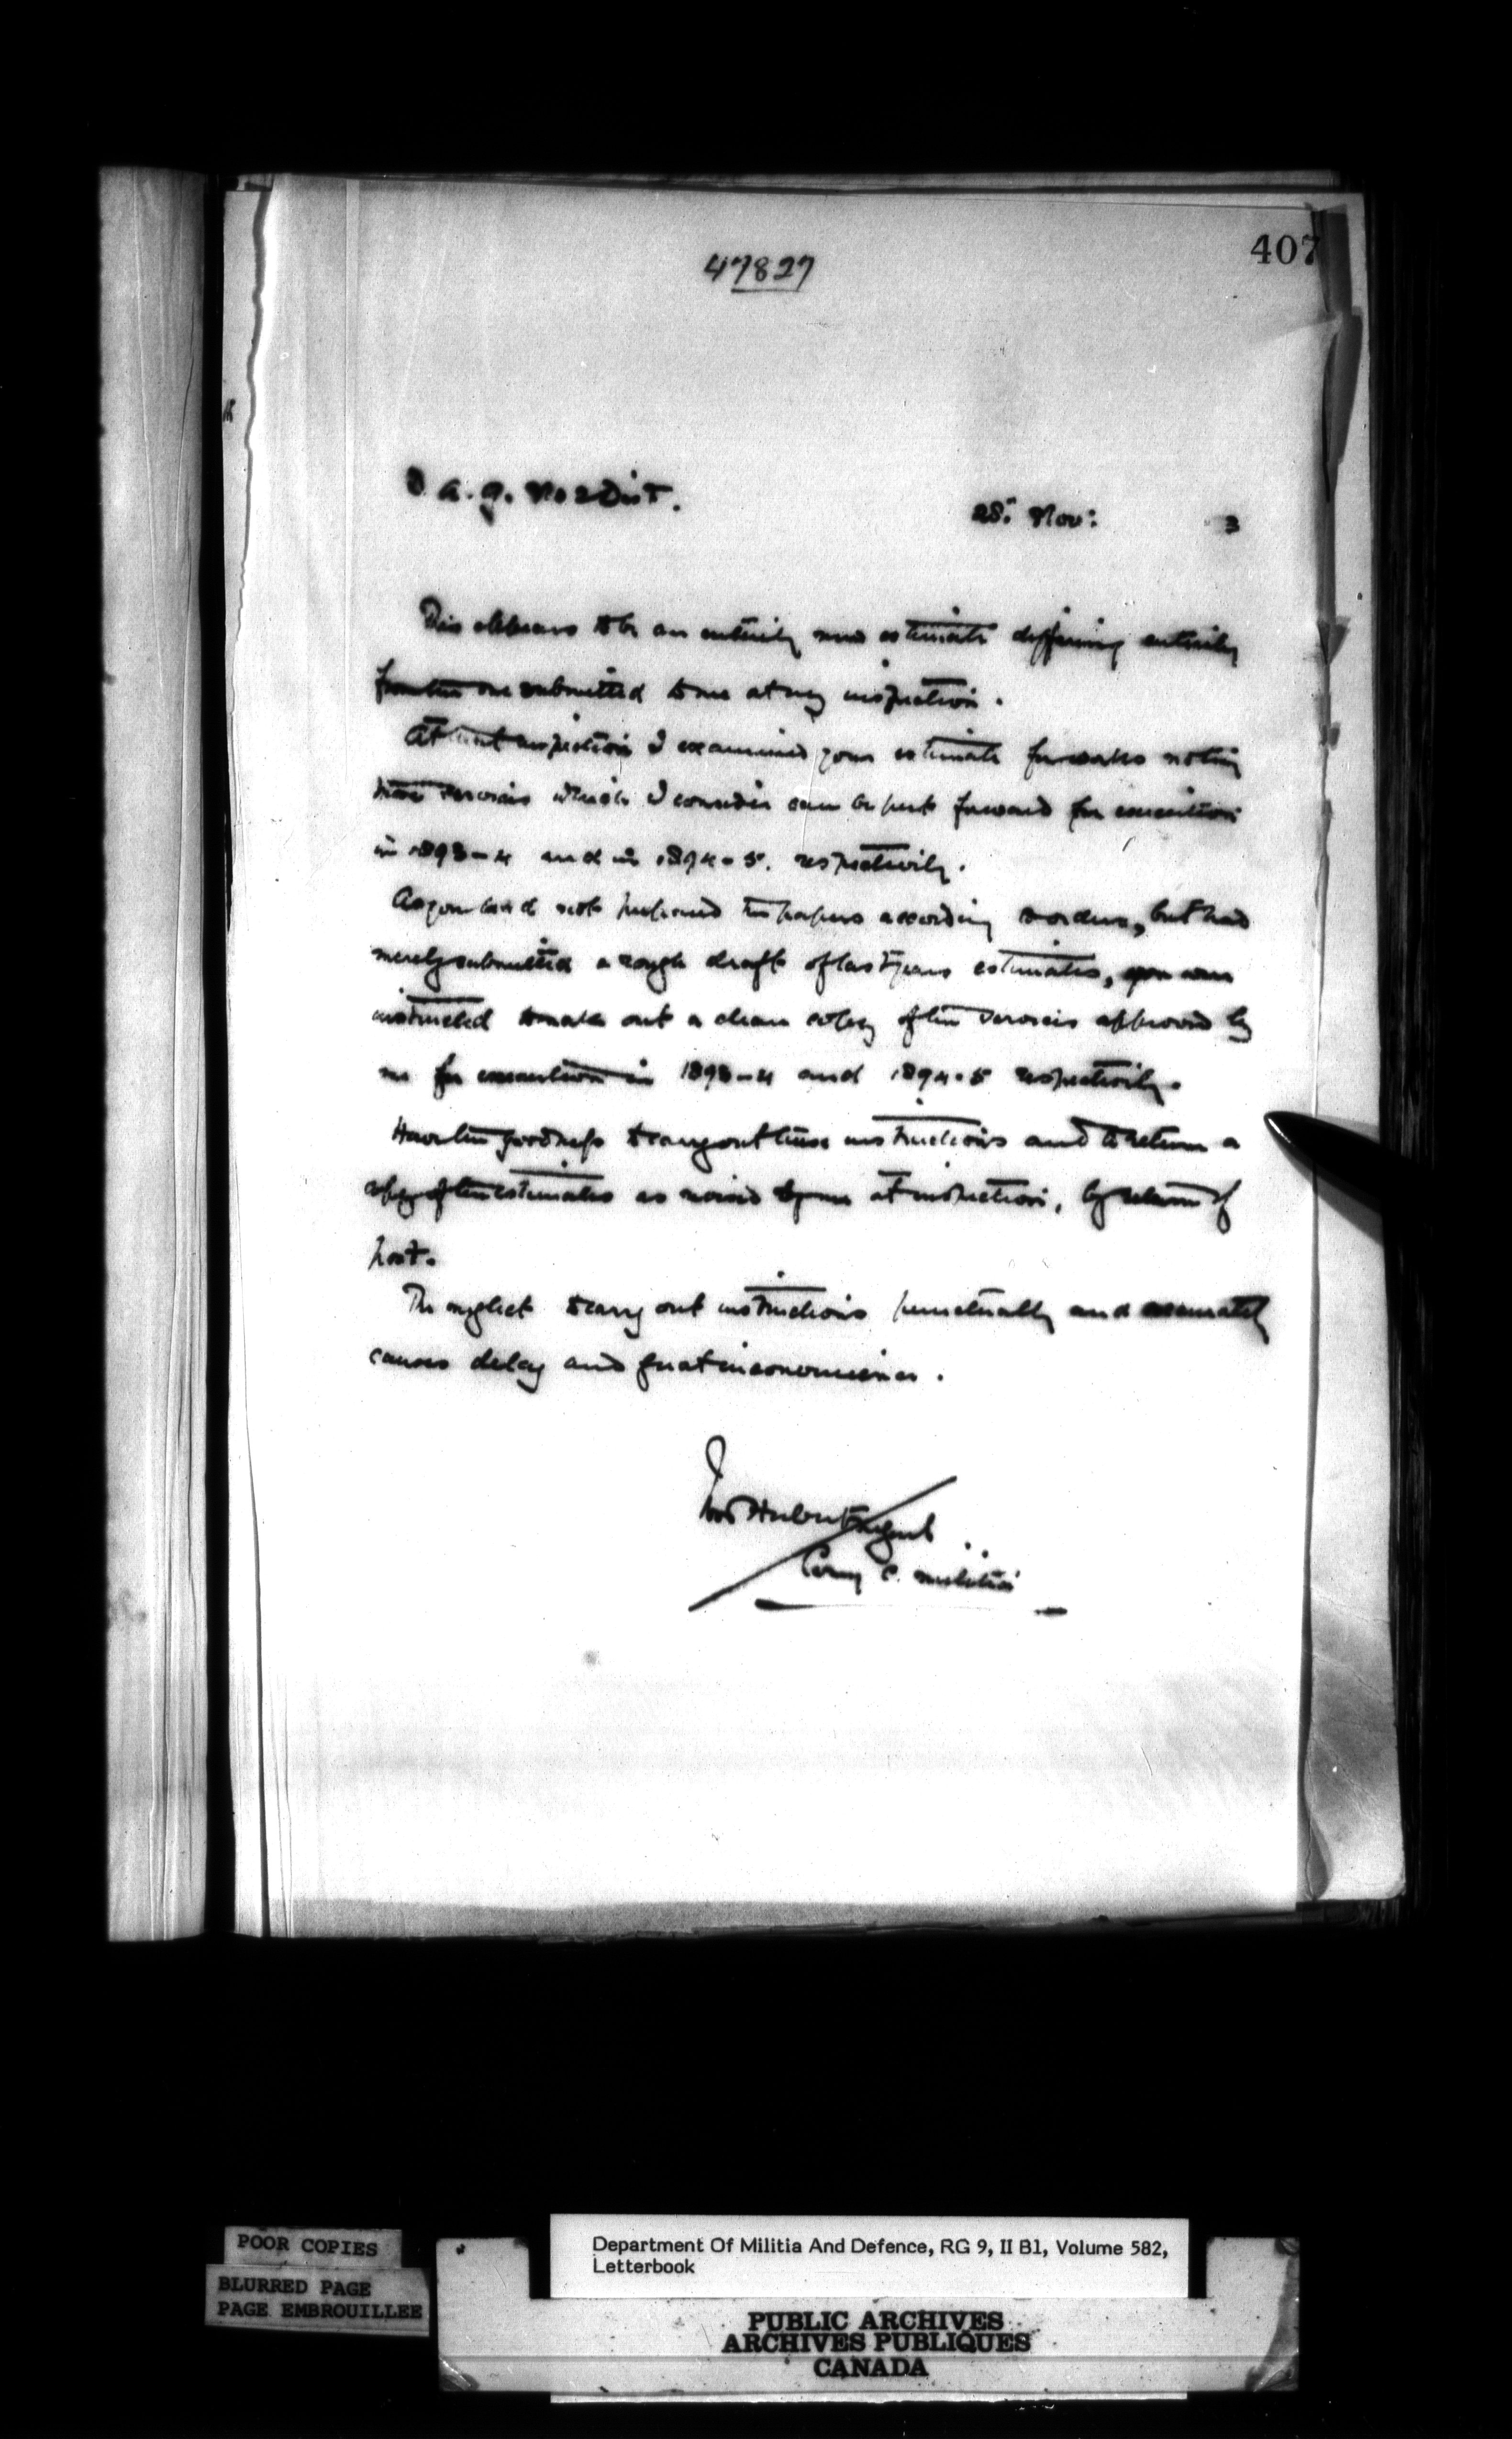 407
47827
D.A.G. No 2 Dist.
28: Nov: 3
This appears to be an entirely new estimate differing entirely
from the one submitted to me at my inspection.
At that inspection I examined your estimate for works noting
those services which I consider can be put forward for execution
in 1893-4 and in 1894-5. respectively.
As you had not prepared the papers according to orders, but had
merely submitted a rough draft of last years estimates, you were
instructed to make out a clean copy of the services approved by
me for execution in 1893-4 and 1894-5 respectively.
Have the goodness to carry out these instructions and to return a
copy of the estimates as revised by me at inspection, by return of
post.
The neglect to carry out instructions punctually and accurately
causes delay and great inconvenience.
Ivor Herbert
Comg C. Militia
POOR COPIES
BLURRED PAGE
PAGE EMBROUILLEE
Department Of Militia And Defence, RG 9, II B1, Volume 582,
Letterbook
PUBLIC ARCHIVES
ARCHIVES PUBLIQUES
CANADA